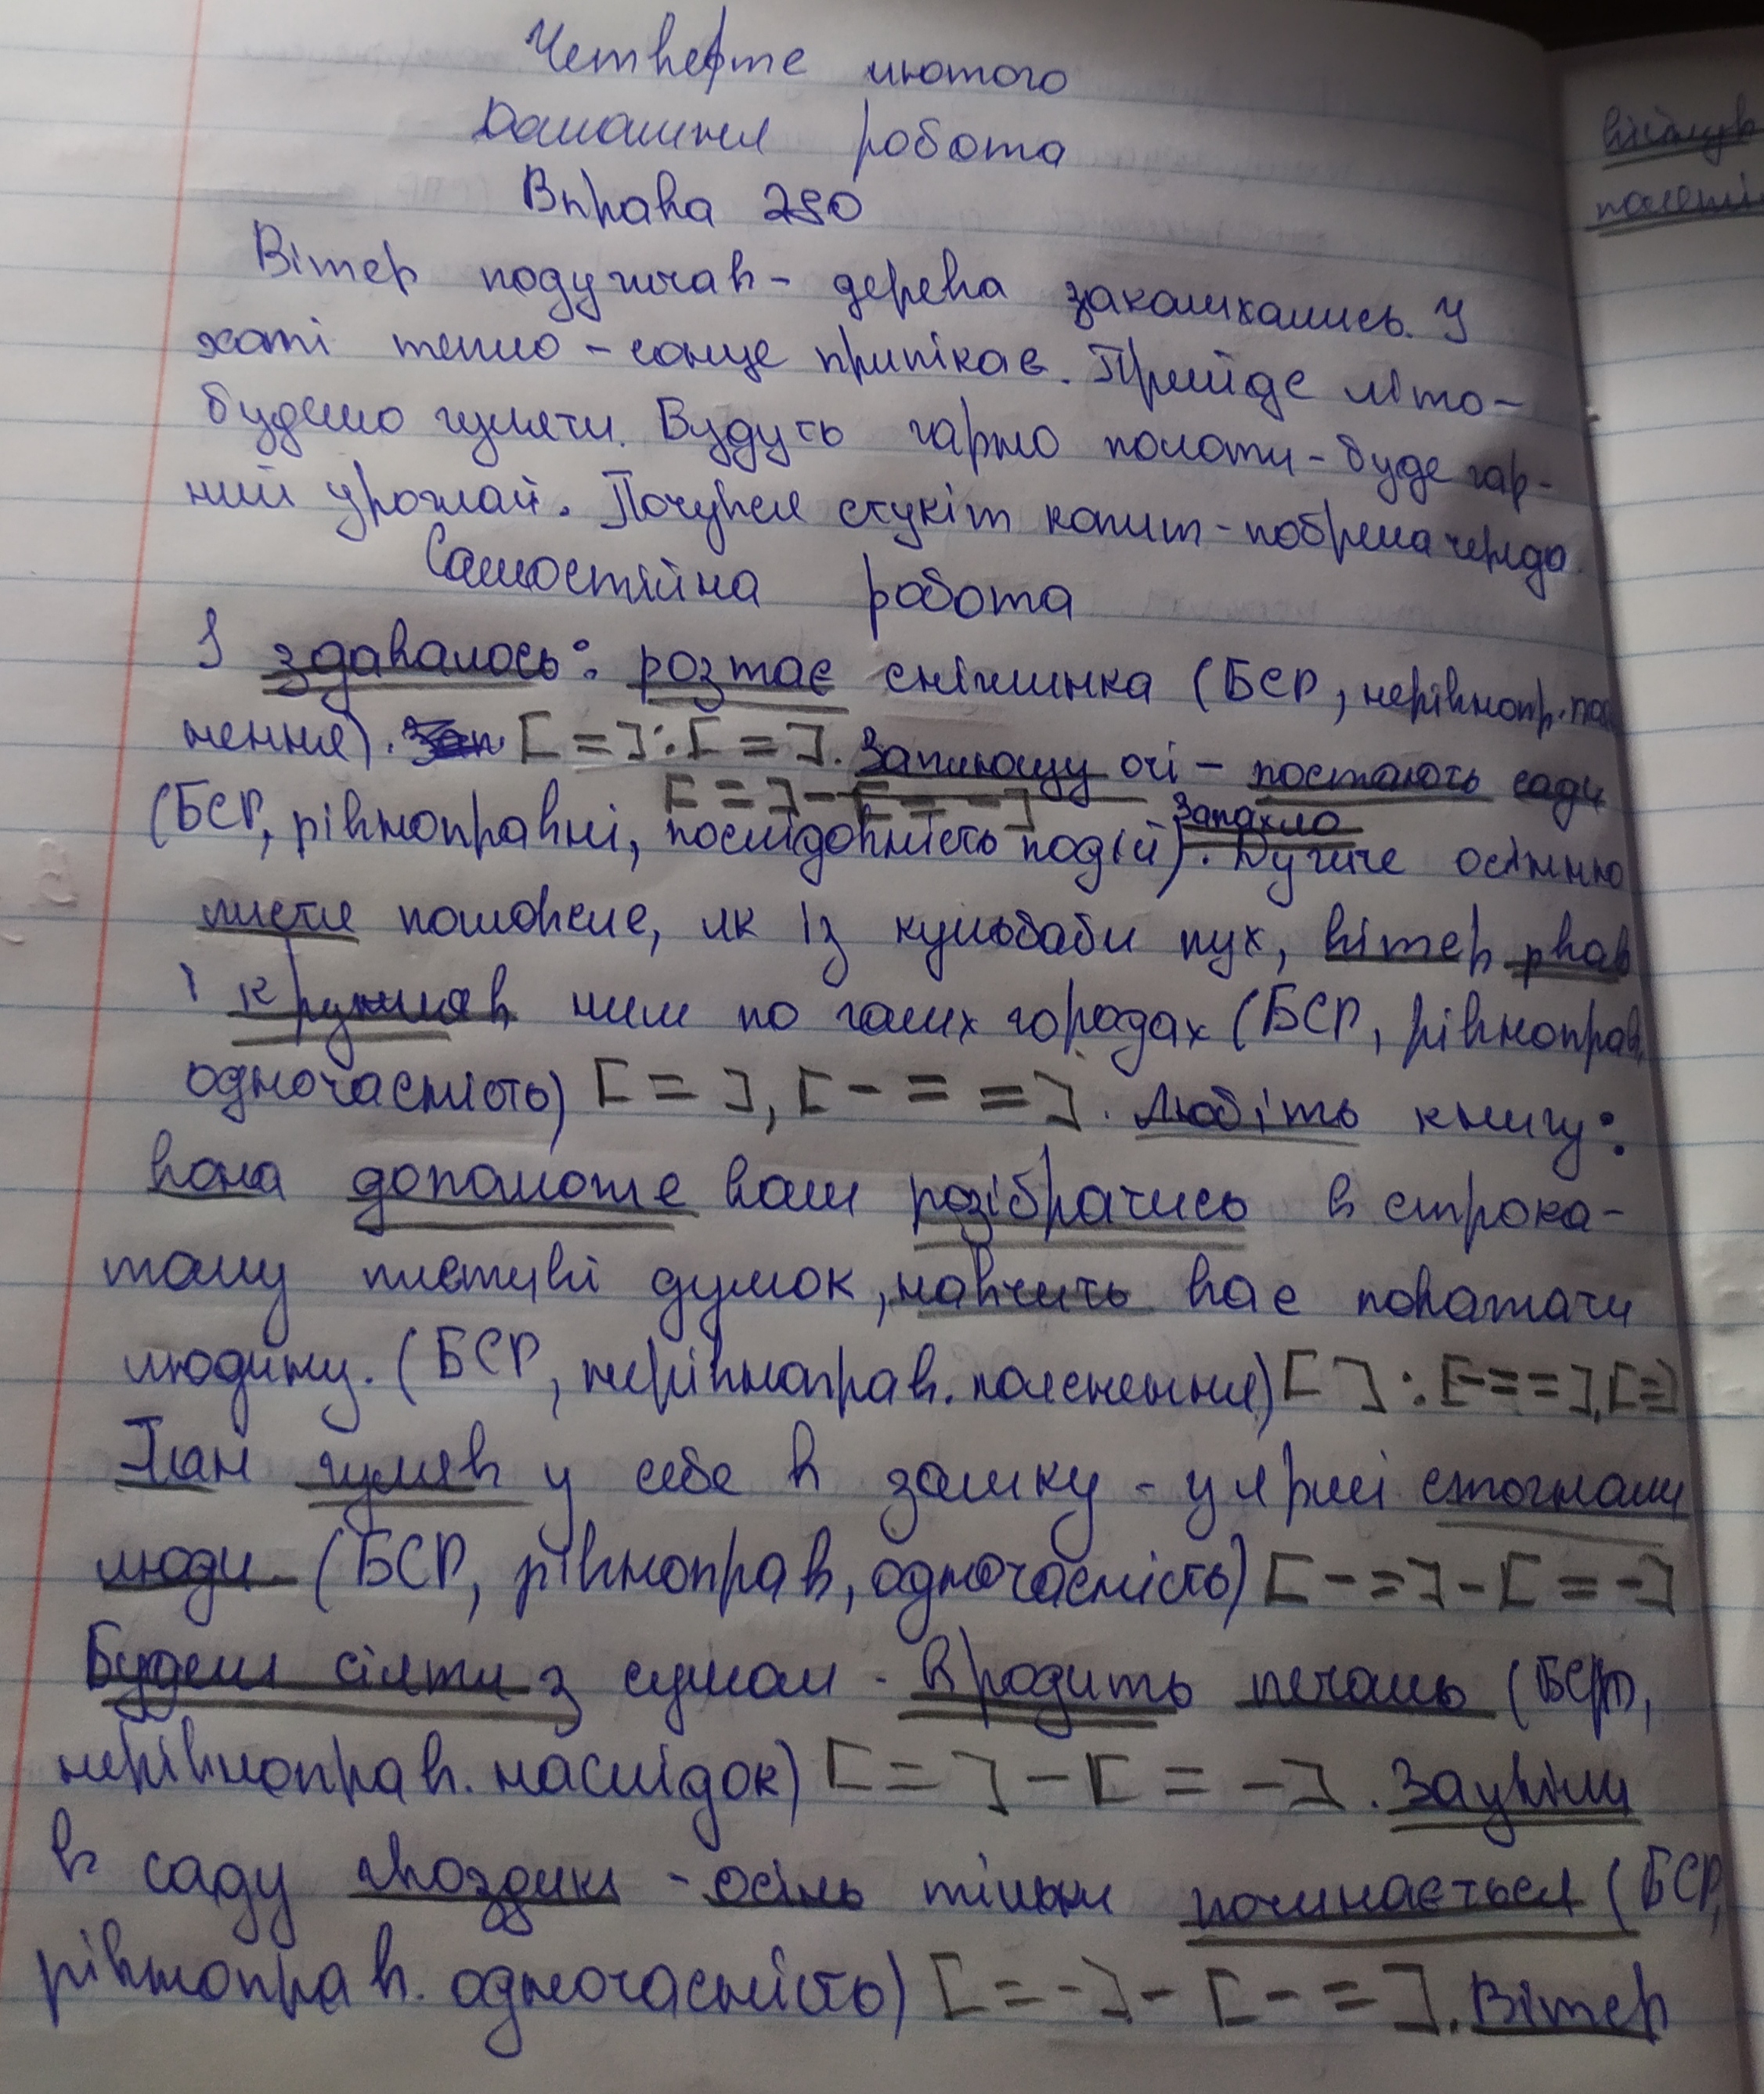 Четверте лютого
Домашня робота
Вправа 280
Вітер подужчав - дерева заколихались. У
хаті тепло - сонце припікає. Прийде літо -
будемо гуляти. Будуть гарно полоти - буде гар-
ний урожай. Почувся стукіт копит - побрела череда.
Самостійна робота
І здавалось: розтає сніжинка (БСР, нерівнопр. пояс
нення). [=]:[=]. Заплющу очі - постають сади
[=]-[=-]
Запахло
(БСР, рівноправні, послідовність подій). Дужче осінню
листя пожовкле, як із кульбаби пух, вітер рвав
і кружляв ним по голих городах (БСР, рівноправ,
одночасність) [=], [-==]. Любіть книгу:
вона допоможе вам розібратись в строка-
тому плетиві думок, навчить вас поважати
людину. (БСР, нерівноправ. пояснення) [ ]:[-==],[=]
Пан гуляв у себе в замку - у ярмі стогнали
люди. (БСР, рівноправ, одночасність) [-=]-[=-]
Будеш сіяти з сумом - вродить печаль (БСР,
нерівноправ. наслідок) [=]-[=-]. Зацвіли
в саду гвоздики - осінь тільки починається (БСР,
рівноправ. одночасність) [=-]-[-=]. Вітер